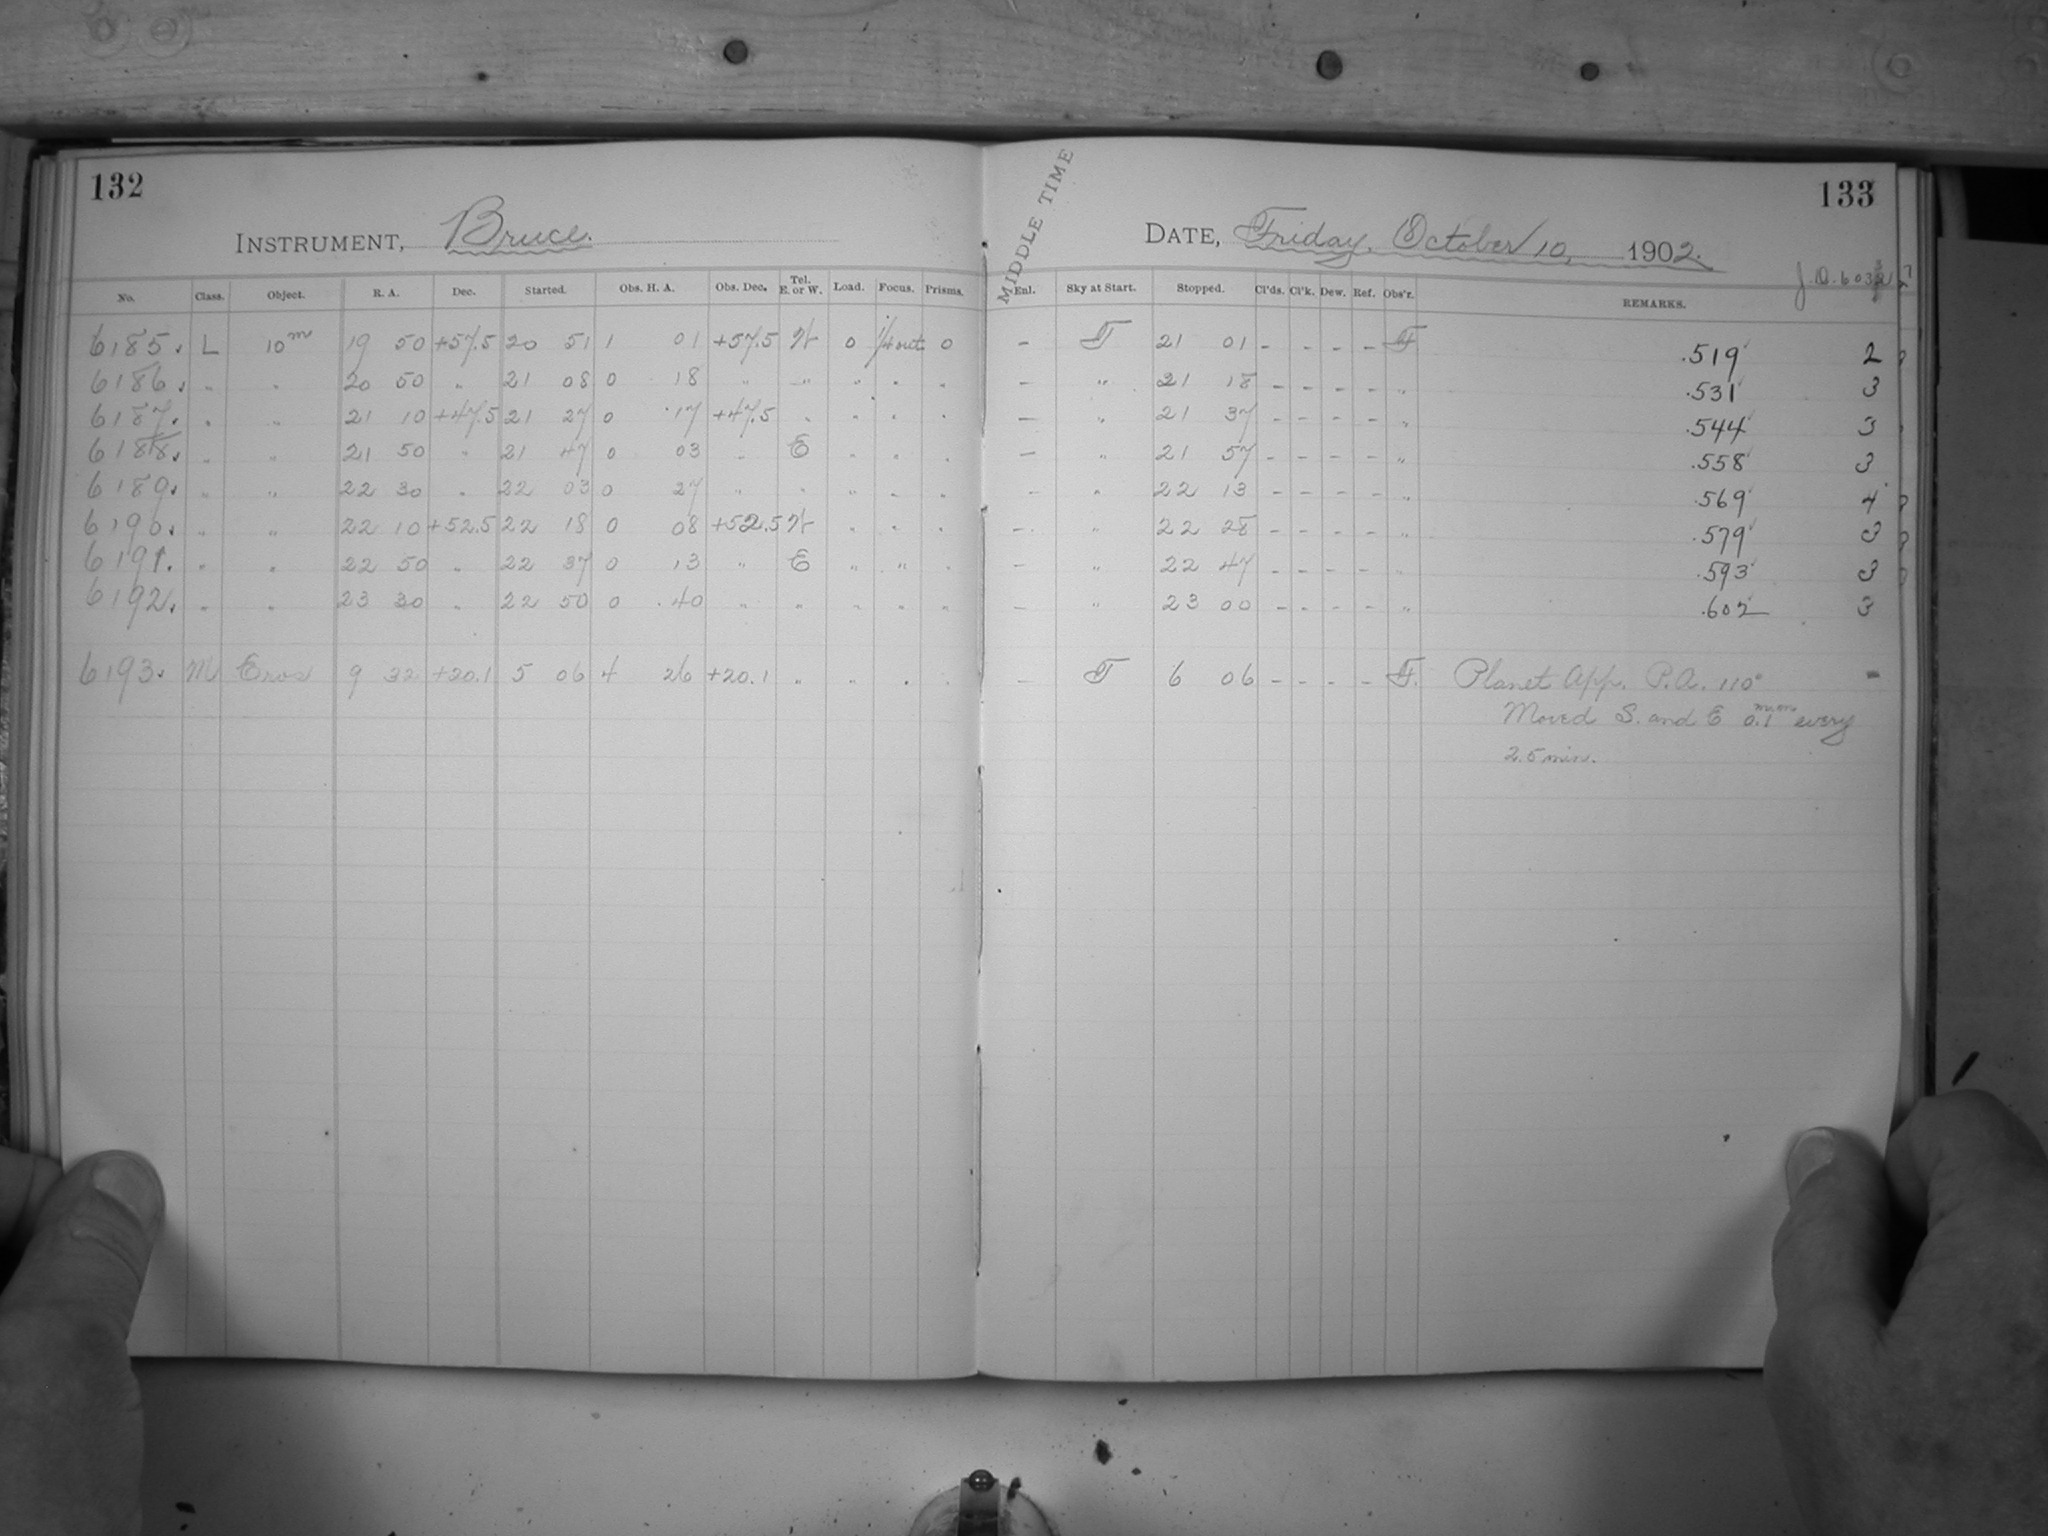 132
INSTRUMENT, Bruce.
No. Class. Object. R. A. Dec. Started. Obs. H. A. Obs. Dec. Tel. E. or W. Load. Focus. Prisms.
6185. L 10m 19 50 +57.5 20 51 1 01 +57.5 W 0 1/4 out 0
6186. " " 20 50 " 21 08 0 18 " " " " "
6187. " " 21 10 +47.5 21 27 0 17 +47.5 " " " "
6188. " " 21 50 " 21 47 0 03 " E " " "
6189. " " 22 30 " 22 03 0 27 " " " " "
6190. " " 22 10 +52.5 22 18 0 08 +52.5 W " " "
6191. " " 22 50 " 22 37 0 13 " E " " "
6192. " " 23 30 " 22 50 0 40 " " " " "
6193. M Eros 9 32 +20.1 5 06 4 26 +20.1 " " " "
133
MIDDLE TIME
DATE, Friday, October 10, 1902.
J.D. 603
Enl. Sky at Start. Stopped. Cl'ds. Cl'k. Dew. Ref. Obs'r. REMARKS.
- 21 01 - - - - .519 2
- " 21 18 - - - - " .531 3
- " 21 37 - - - - " .544 3
- " 21 57 - - - - " .558 3
- " 22 13 - - - - " .569 4
- " 22 28 - - - - " .579 3
- " 22 47 - - - - " .593 3
- " 23 00 - - - - " .602 3
- 6 06 - - - - Planet App. P.A. 110° -
Moved S. and E 0.1 mm every
2.5 min.